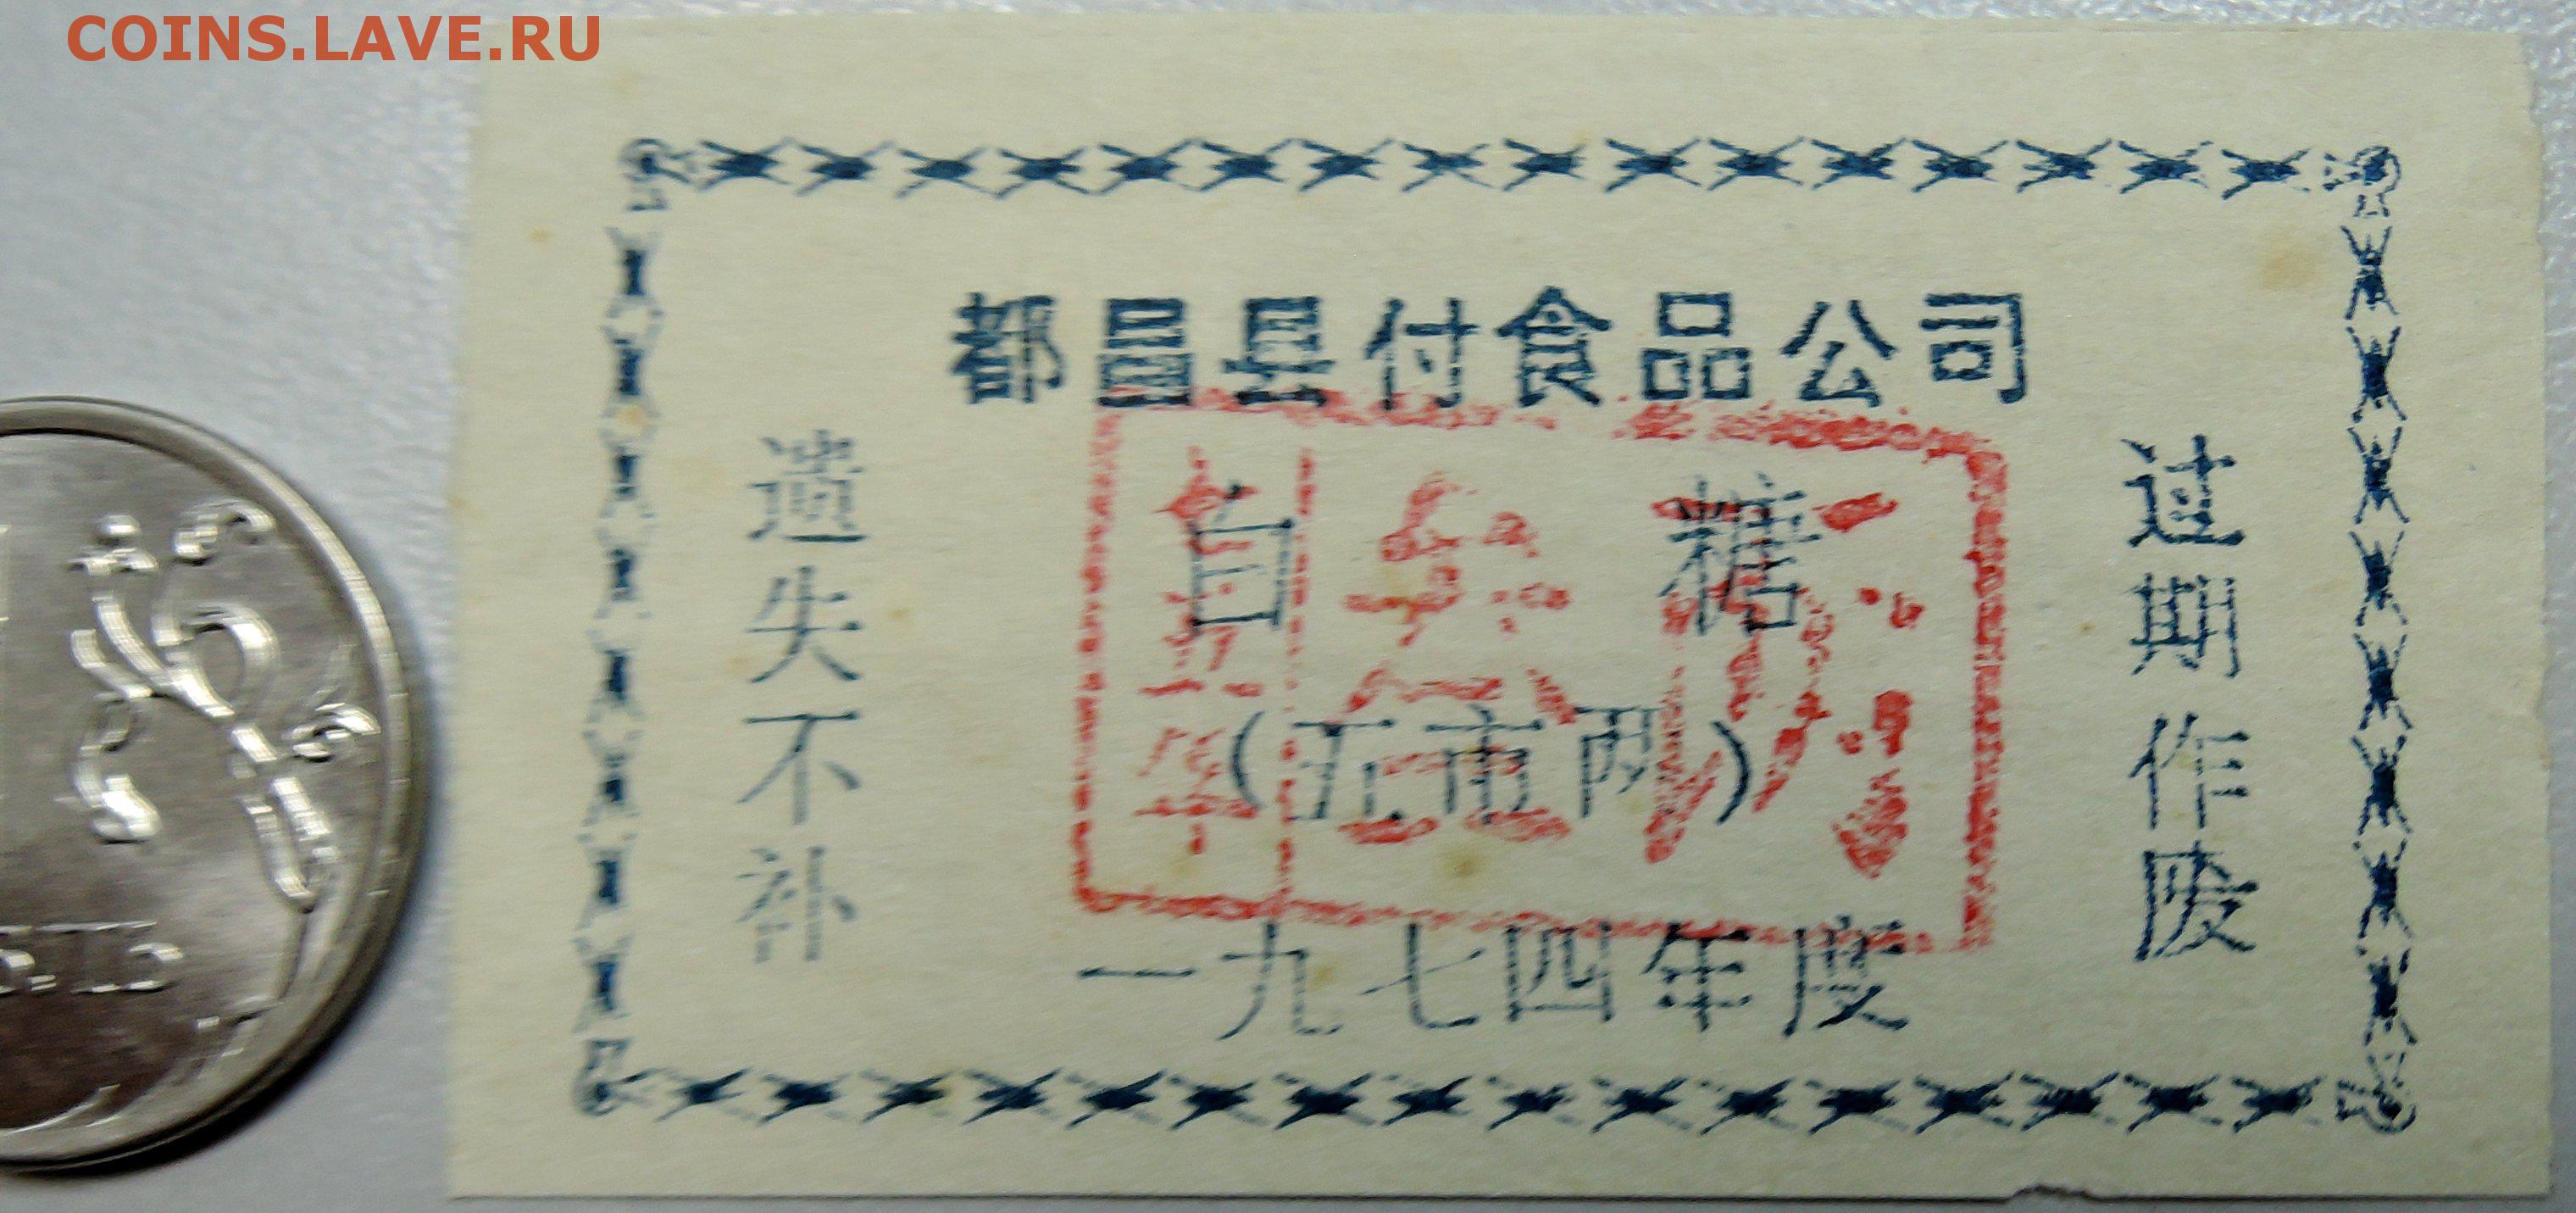 COINS.LAVE.RU
都昌县付食品公司
遗失不补
白糖
(五市两)
过期作废
一九七四年度